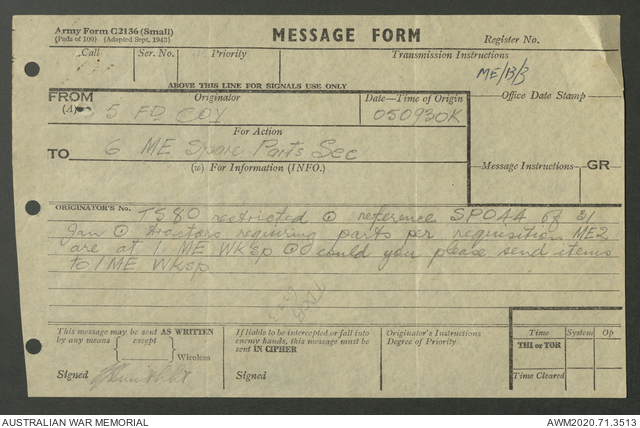 Army Form C2136 (Small)
(Pads of 100) (Adapted Sept. 1943)
MESSAGE FORM
Register No.
Call
Ser. No.
Priority
Transmission Instructions
ME/13/3
ABOVE THIS LINE FOR SIGNALS USE ONLY
FROM
(A)
Originator
5 FD COY
Date—Time of Origin
050930K
Office Date Stamp
For Action
TO
6 ME Spare Parts Sec
(W) For Information (INFO.)
Message Instructions
GR
ORIGINATOR'S No.
TS80 restricted ⊙ reference SPO44 of 31
Jan ⊙ tractors requiring parts per requisition ME2
are at 1 ME WKsp ⊙⊙ could you please send items
to 1 ME WKsp
This message may be sent AS WRITTEN
by any means
except
Wireless
Signed
If liable to be intercepted or fall into
enemy hands, this message must be
sent IN CIPHER
Signed
Originator's Instructions
Degree of Priority
Time
System
Op
THI or TOR
Time Cleared
AUSTRALIAN WAR MEMORIAL
AWM2020.71.3513